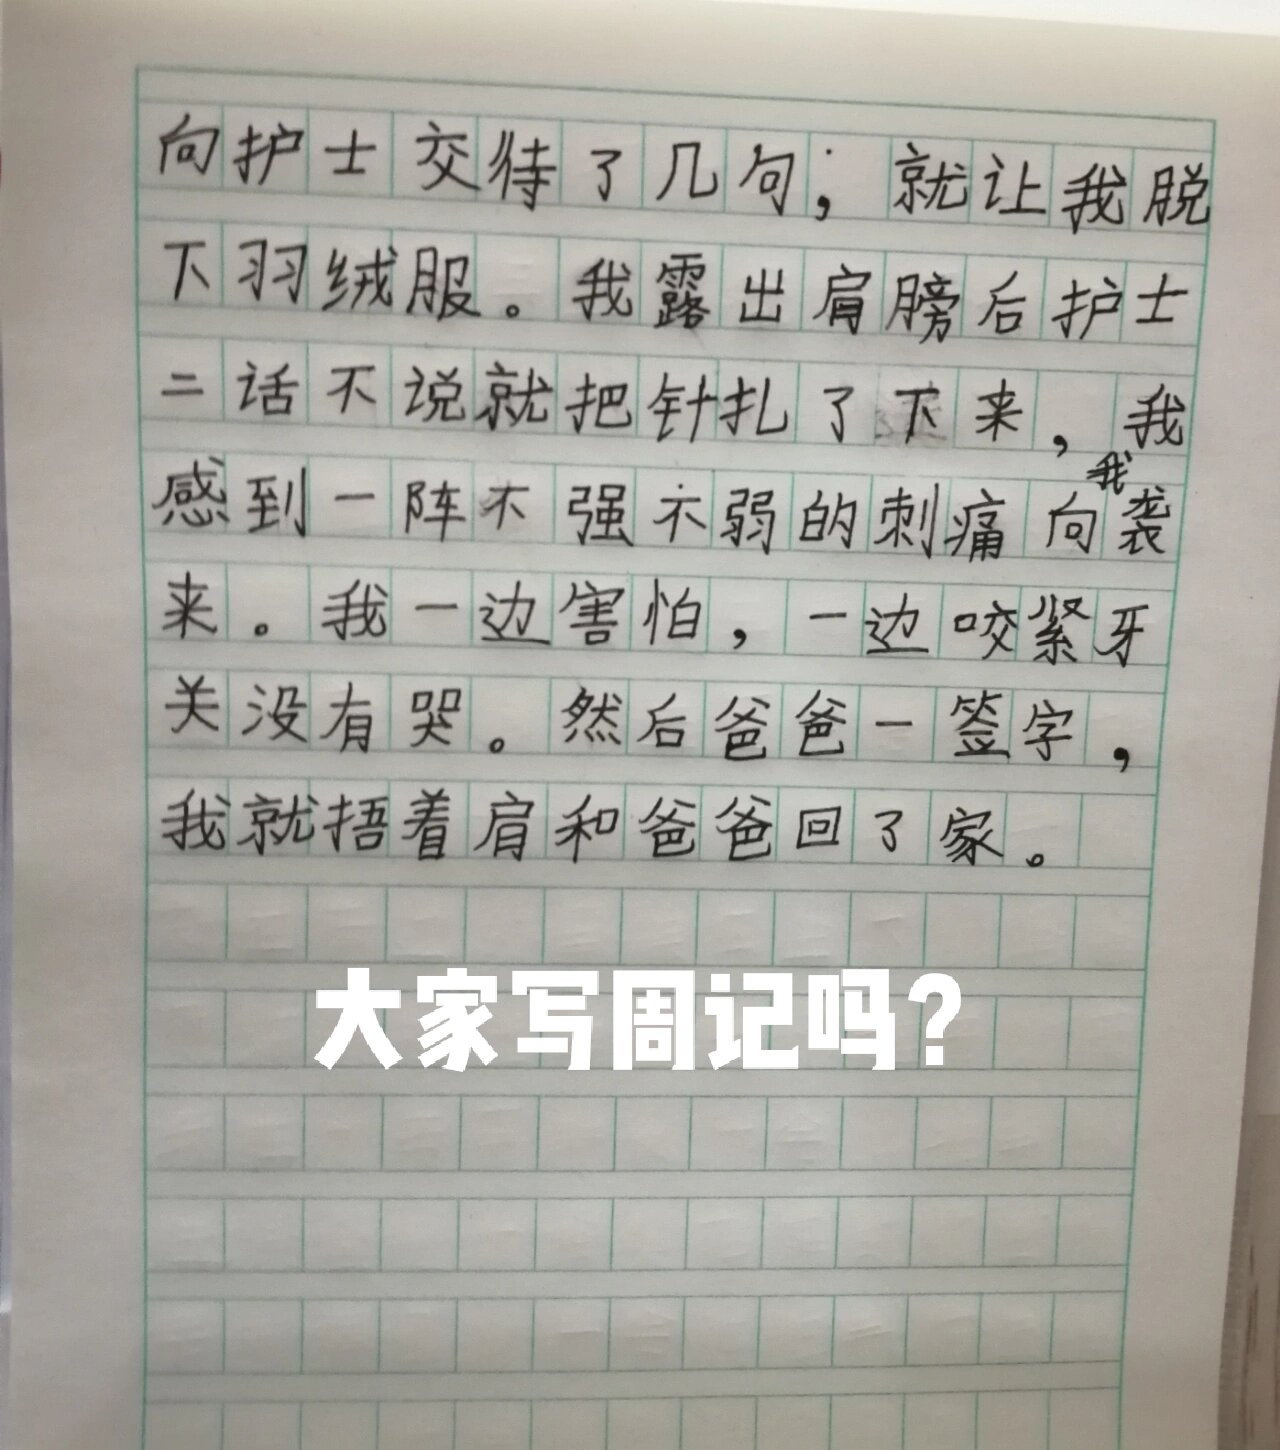 向护士交待了几句；就让我脱
下羽绒服。我露出肩膀后护士
二话不说就把针扎了下来，我
感到一阵不强不弱的刺痛向我袭
来。我一边害怕，一边咬紧牙
关没有哭。然后爸爸一签字，
我就捂着肩和爸爸回了家。
大家写周记吗？